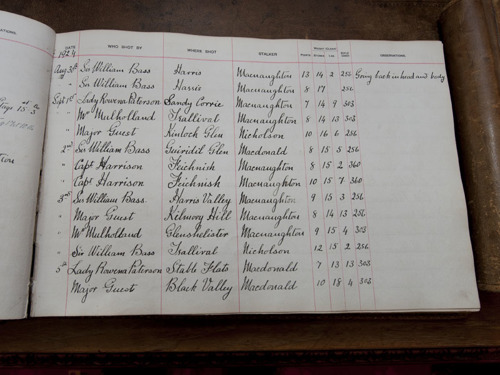 DATE WHO SHOT BY WHERE SHOT STALKER POINTS WEIGHT CLEAN STONES LBS. OBSERVATIONS
1924
Aug 30th Sir William Bass Harris Macnaughton 13 14 2 256 Going back in head and body
" Sir William Bass Harris Macnaughton 8 17 256
Sept 1st Lady Rowena Paterson Sandy Corrie Macnaughton 7 14 9 303
" Mr Mulholland Trallival Macnaughton 8 14 13 303
" Major Guest Kinloch Glen Nicholson 10 16 6 256
2nd Sir William Bass Guiridil Glen Macdonald 8 15 5 256
" Capt Harrison Feichnish Macnaughton 8 15 2 360
" Capt Harrison Feichnish Macnaughton 10 15 7 360
3rd Sir William Bass Harris Valley Macnaughton 9 15 3 256
" Major Guest Kilmory Hill Macnaughton 8 14 13 256
" Mr Mulholland Glenshelister Macnaughton 9 15 4 303
" Sir William Bass Trallival Nicholson 12 15 2 256
5th Lady Rowena Paterson Stable Flats Macdonald 7 13 13 303
Major Guest Black Valley Macdonald 10 18 4 303